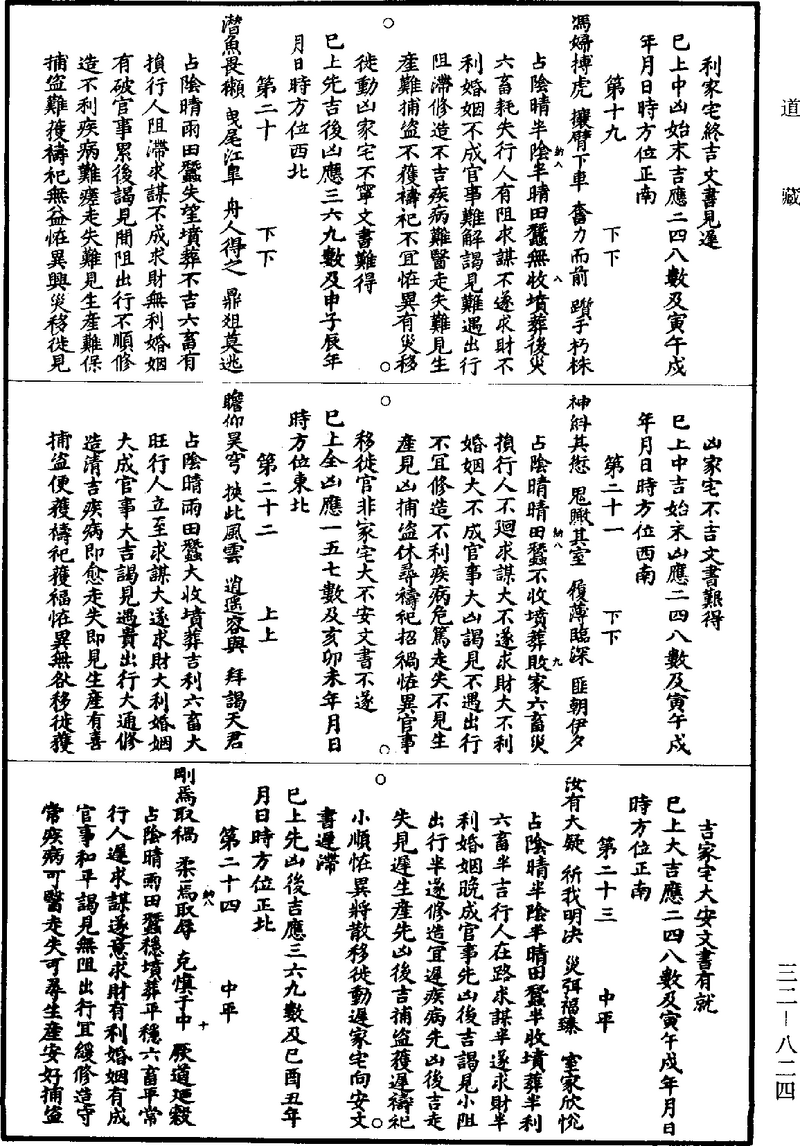 道藏
利家宅終吉文書見遲
巳上中凶始末吉應二四八數及寅午戌
年月日時方位正南
第十九 下下
馮婦搏虎 攘臂下車 奮力而前 躓于朽株
占陰晴半陰半晴田蠶無收墳葬後災
六畜耗失行人有阻求謀不遂求財不
利婚姻不成官事難解謁見難遇出行
阻滯修造不吉疾病難醫走失難見生
產難捕盜不獲禱祀不宜怪異有災移
徙動凶家宅不寧文書難得
巳上先吉後凶應三六九數及申子辰年
月日時方位西北
第二十 下下
潛魚畏獺 曳尾江皐 舟人得之 鼎俎莫逃
占陰晴雨田蠶失望墳葬不吉六畜有
損行人阻滯求謀不成求財無利婚姻
有破官事累後謁見間阻出行不順修
造不利疾病難瘥走失難見生產難保
捕盜難獲禱祀無益怪異興災移徙見
凶家宅不吉文書難得
巳上中吉始末凶應二四八數及寅午戌
年月日時方位西南
第二十一 下下
神糾其愆 鬼瞰其室 履薄臨深 匪朝伊夕
占陰晴晴田蠶不收墳葬敗家六畜災
損行人不迴求謀大不遂求財大不利
婚姻大不成官事大凶謁見不遇出行
不宜修造不利疾病危篤走失不見生
產見凶捕盜休尋禱祀招禍怪異官事
移徙官非家宅大不安文書不遂
巳上全凶應一五七數及亥卯未年月日
時方位東北
第二十二 上上
瞻仰昊穹 挾此風雲 逍遙容與 拜謁天君
占陰晴雨田蠶大收墳葬吉利六畜大
旺行人立至求謀大遂求財大利婚姻
大成官事大吉謁見遇貴出行大通修
造清吉疾病即愈走失即見生產有喜
捕盜便獲禱祀獲福怪異無咎移徙獲
吉家宅大安文書有就
巳上大吉應二四八數及寅午戌年月日
時方位正南
第二十三 中平
汝有大疑 祈我明决 災弭福臻 室家欣悅
占陰晴半陰半晴田蠶半收墳葬半利
六畜半吉行人在路求謀半遂求財半
利婚姻晚成官事先凶後吉謁見小阻
出行半遂修造宜遲疾病先凶後吉走
失見遲生產先凶後吉捕盜獲遲禱祀
小順怪異將散移徙動遲家宅向安文
書遲滯
巳上先凶後吉應三六九數及巳酉丑年
月日時方位正北
第二十四 中平
剛焉取禍 柔焉取辱 克慎于中 厥道迺穀
占陰晴雨田蠶穩墳葬平穩六畜平常
行人遲求謀遂意求財有利婚姻有成
官事和平謁見無阻出行宜緩修造守
常疾病可醫走失可尋生產安好捕盜
三二－八二四